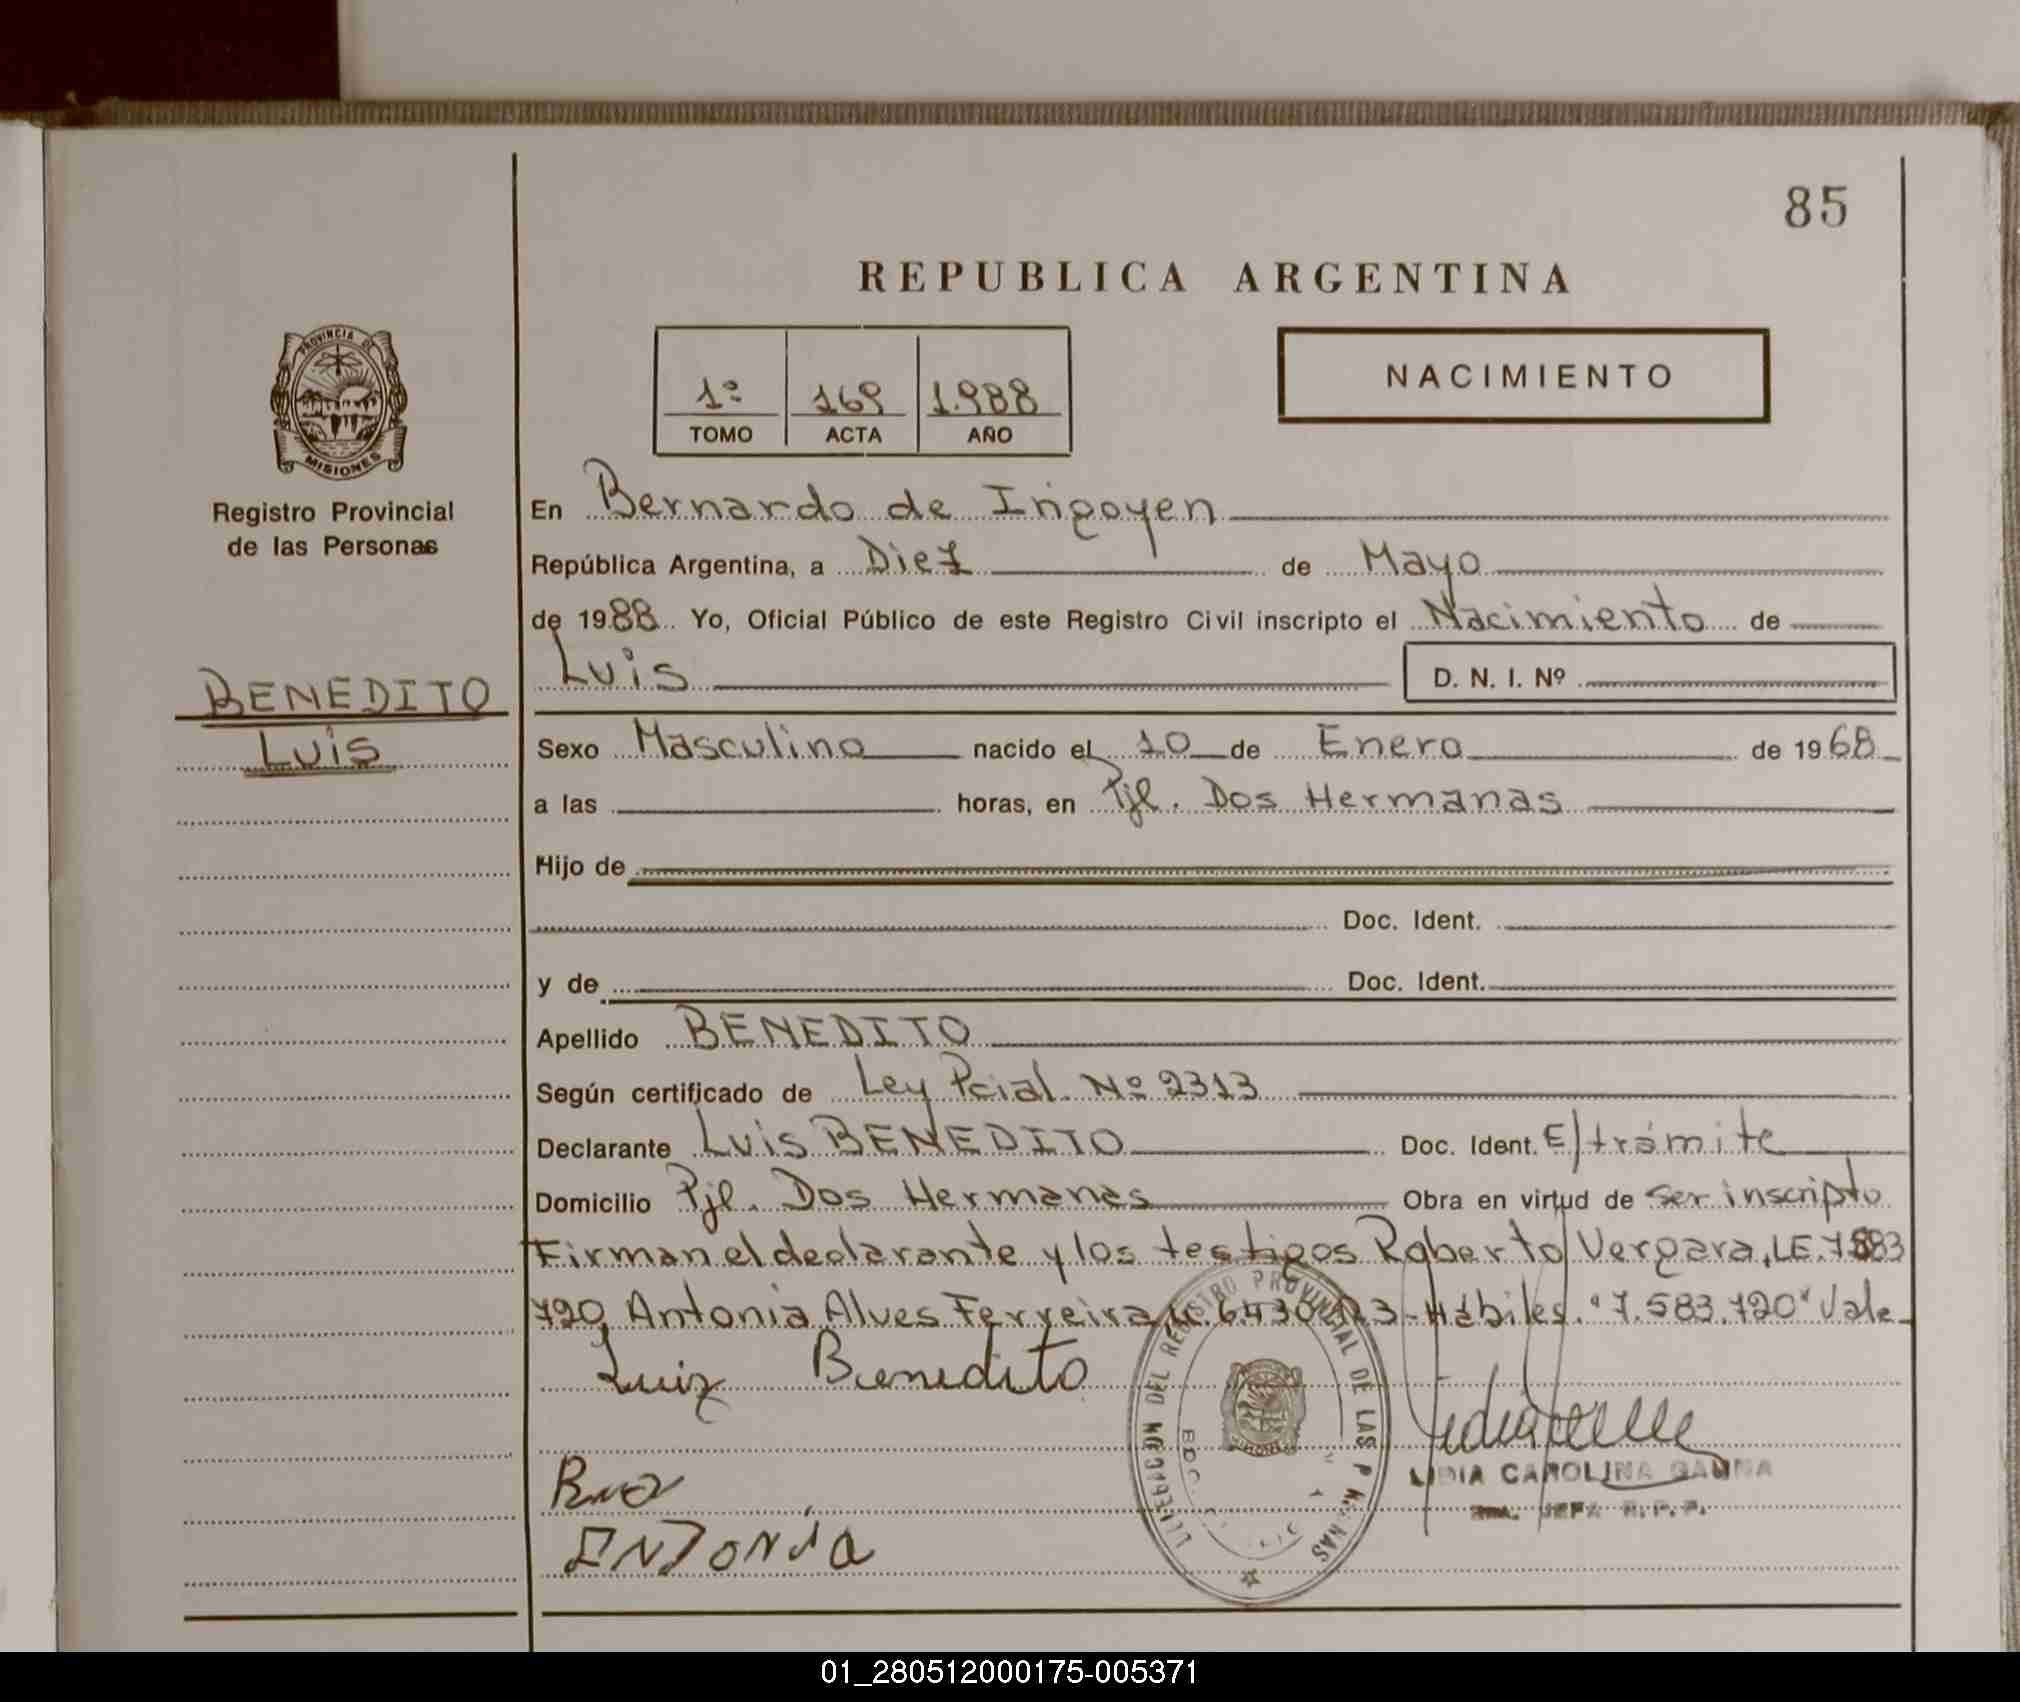 85
REPUBLICA ARGENTINA
PROVINCIA DE
MISIONES
Registro Provincial
de las Personas
1º 169 1.988
TOMO ACTA AÑO
NACIMIENTO
En Bernardo de Irigoyen
República Argentina, a Diez de Mayo
de 1988 Yo, Oficial Público de este Registro Civil inscripto el Nacimiento de
Luis D. N. I. Nº
BENEDITO
Luis
Sexo Masculino nacido el 10 de Enero de 1968
a las horas, en Pje. Dos Hermanas
Hijo de
Doc. Ident.
y de Doc. Ident.
Apellido BENEDITO
Según certificado de Ley Pcial. Nº 2313
Declarante Luis BENEDITO Doc. Ident. E/trámite
Domicilio Pje. Dos Hermanas Obra en virtud de ser inscripto
Firman el declarante y los testigos Roberto Vergara, LE. 7583
720, Antonia Alves Ferreira, Hábiles. "7.583.720" Vale
Luiz Benedito
DELEGACION DEL REGISTRO PROVINCIAL DE LAS PERSONAS
LIDIA CAROLINA GAUNA
JEFA R.P.P.
01_280512000175-005371